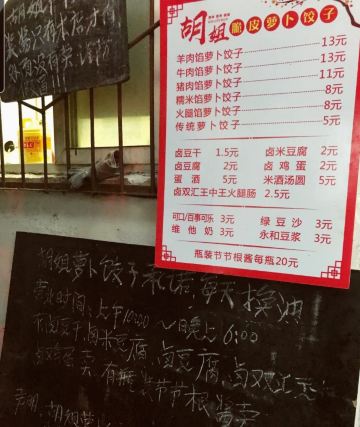 胡姐 脆皮萝卜饺子
羊肉馅萝卜饺子 13元
牛肉馅萝卜饺子 13元
猪肉馅萝卜饺子 11元
糯米馅萝卜饺子 8元
火腿馅萝卜饺子 8元
传统萝卜饺子 5元
卤豆干 1.5元 卤米豆腐 2元
卤豆腐 2元 卤鸡蛋 2元
蛋酒 5元 米酒汤圆 5元
卤双汇王中王火腿肠 2.5元
可口/百事可乐 3元 绿豆沙 3元
维他奶 3元 永和豆浆 3元
瓶装节节根酱每瓶20元
胡姐萝卜饺子承诺,每天换油
营业时间:上午10:00~晚上6:00
豆干,卤米豆腐,卤豆腐,卤双汇王
卤鸡蛋卖,有瓶装节节根酱卖
声明:胡姐萝